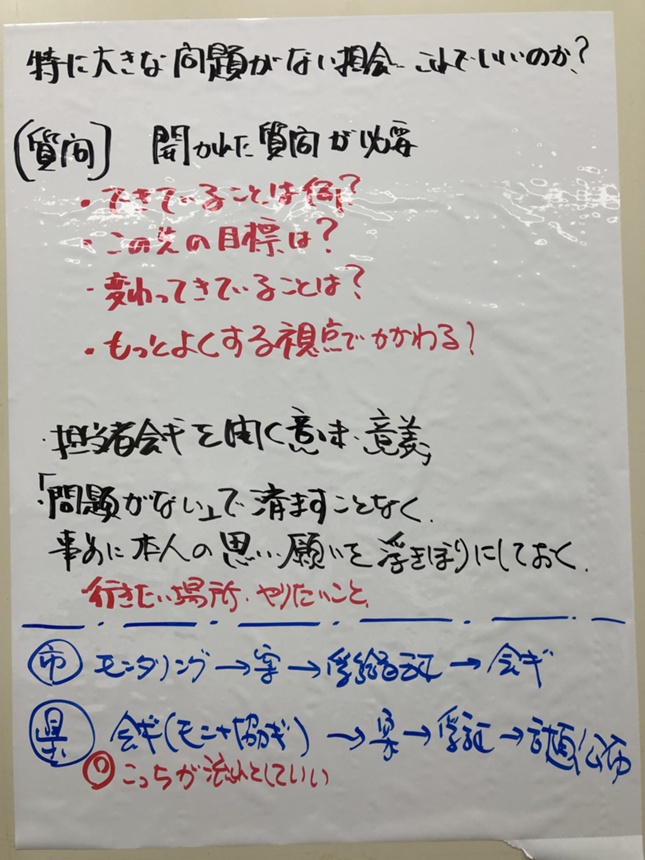 特に大きな問題がない担会 これでいいのか?
[質問] 開かれた質問が必要
・できていることは何?
・この先の目標は?
・変わってきていることは?
・もっとよくする視点でかかわる!
・担当者会ギを開く意味・意義」
・「問題がない」で済ますことなく.
事前に本人の思い.願いを浮きぼりにしておく.
行きたい場所・やりたいこと.
市 モニタリング→案→受給者証→会ギ
県 会ギ(モニナ協ギ)→案→受証→計画/公布
◎こっちが流れとしていい